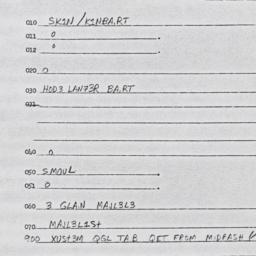 010 SK1N/K1NBA.RT
011 0
012 0
020 0
030 HOD3 LANZ3R BA.RT
031
040 0
050 SMOUL
051 0
060 3 GLAN MAJL3L3
070 MAJL3L1St
900 XUSt3M QGL TAB QET FROM MIDFASH